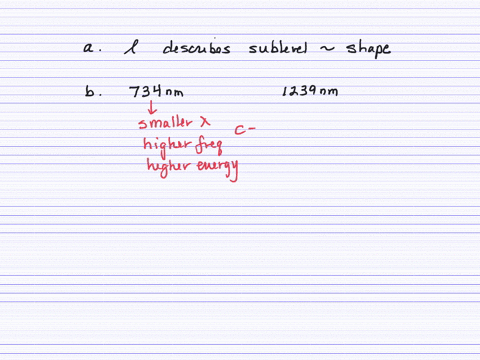 a. l describes sublevel ~ shape
b. 734nm 1239nm
↓
smaller λ
c-
higher freq
higher energy